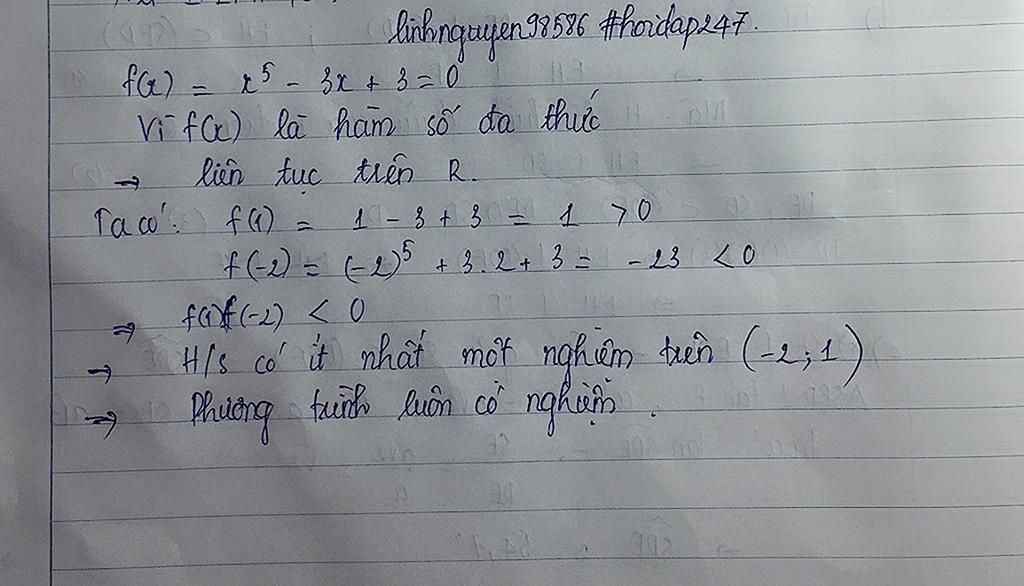 linhnguyen98586 #hoidap247.
f(x) = x⁵ - 3x + 3 = 0
Vì f(x) là hàm số đa thức
→ liên tục trên R.
Ta có: f(1) = 1 - 3 + 3 = 1 > 0
f(-2) = (-2)⁵ + 3.2 + 3 = -23 < 0
⇒ f(1)f(-2) < 0
→ H/s có ít nhất một nghiệm trên (-2; 1)
⇒ Phương trình luôn có nghiệm.